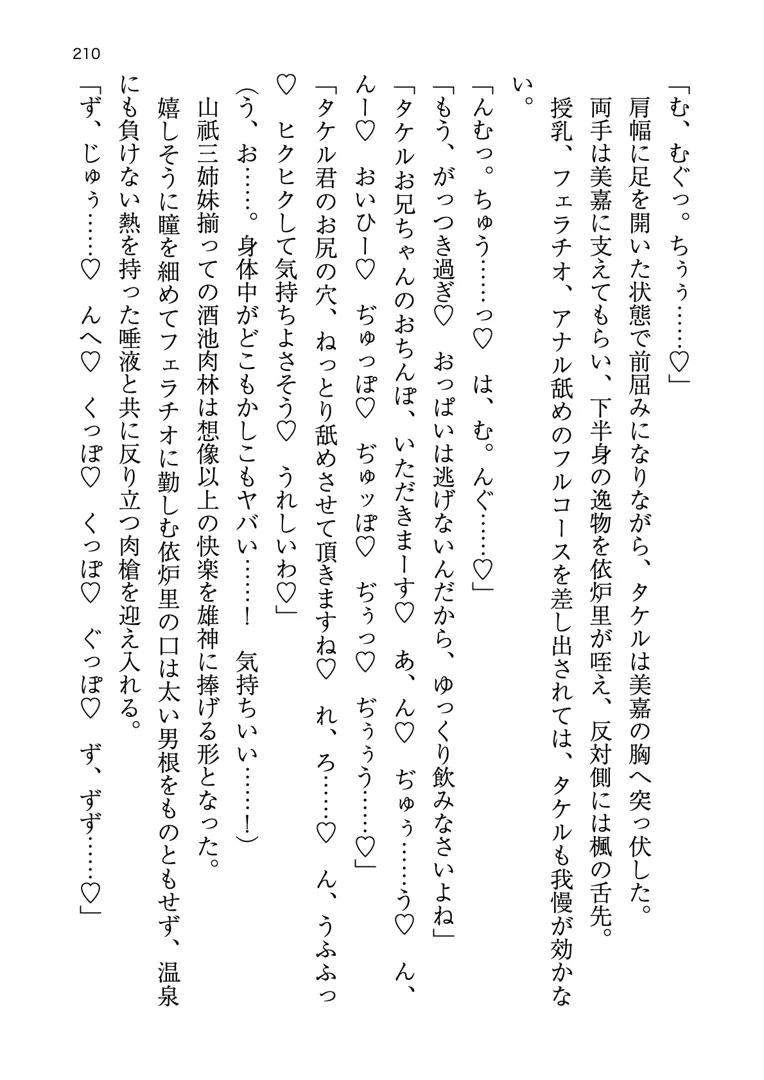 210
「む、むぐっ。ちぅぅ……♡」
肩幅に足を開いた状態で前屈みになりながら、タケルは美嘉の胸へ突っ伏した。
両手は美嘉に支えてもらい、下半身の逸物を依炉里が咥え、反対側には楓の舌先。
授乳、フェラチオ、アナル舐めのフルコースを差し出されては、タケルも我慢が効かな
い。
「んむっ。ちゅう……っ♡　は、む。んぐ……♡」
「もう、がっつき過ぎ♡　おっぱいは逃げないんだから、ゆっくり飲みなさいよね」
「タケルお兄ちゃんのおちんぽ、いただきまーす♡　あ、ん♡　ぢゅぅ……う♡　ん、
んー♡　おいひー♡　ぢゅっぽ♡　ぢゅッぽ♡　ぢぅっ♡　ぢぅぅう……♡」
「タケル君のお尻の穴、ねっとり舐めさせて頂きますね♡　れ、ろ……♡　ん、うふふっ
♡　ヒクヒクして気持ちよさそう♡　うれしいわ♡」
（う、お……。身体中がどこもかしこもヤバい……！　気持ちいい……！）
山祇三姉妹揃っての酒池肉林は想像以上の快楽を雄神に捧げる形となった。
嬉しそうに瞳を細めてフェラチオに勤しむ依炉里の口は太い男根をものともせず、温泉
にも負けない熱を持った唾液と共に反り立つ肉槍を迎え入れる。
「ず、じゅぅ……♡　んへ♡　くっぽ♡　くっぽ♡　ぐっぽ♡　ず、ずず……♡」